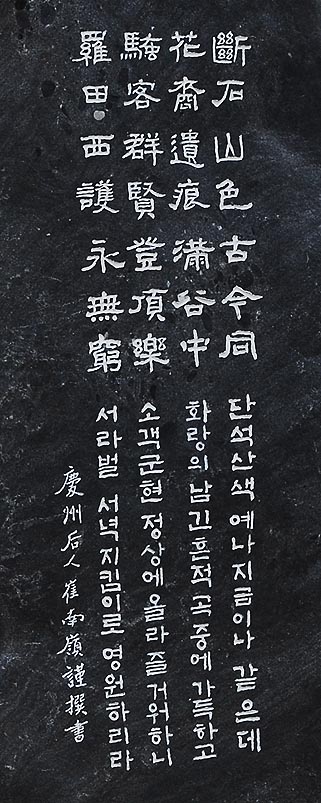 斷石山色古今同
花裔遺痕滿谷中
騷客群賢登頂樂
羅田西護永無窮
단석산색 예나지금이나 같으데
화랑의 남긴 흔적 곡중에 가득하고
소객군현 정상에올라 즐거워하니
서라벌 서녁지킴이로 영원하리라
慶州后人 崔南嶺謹撰書